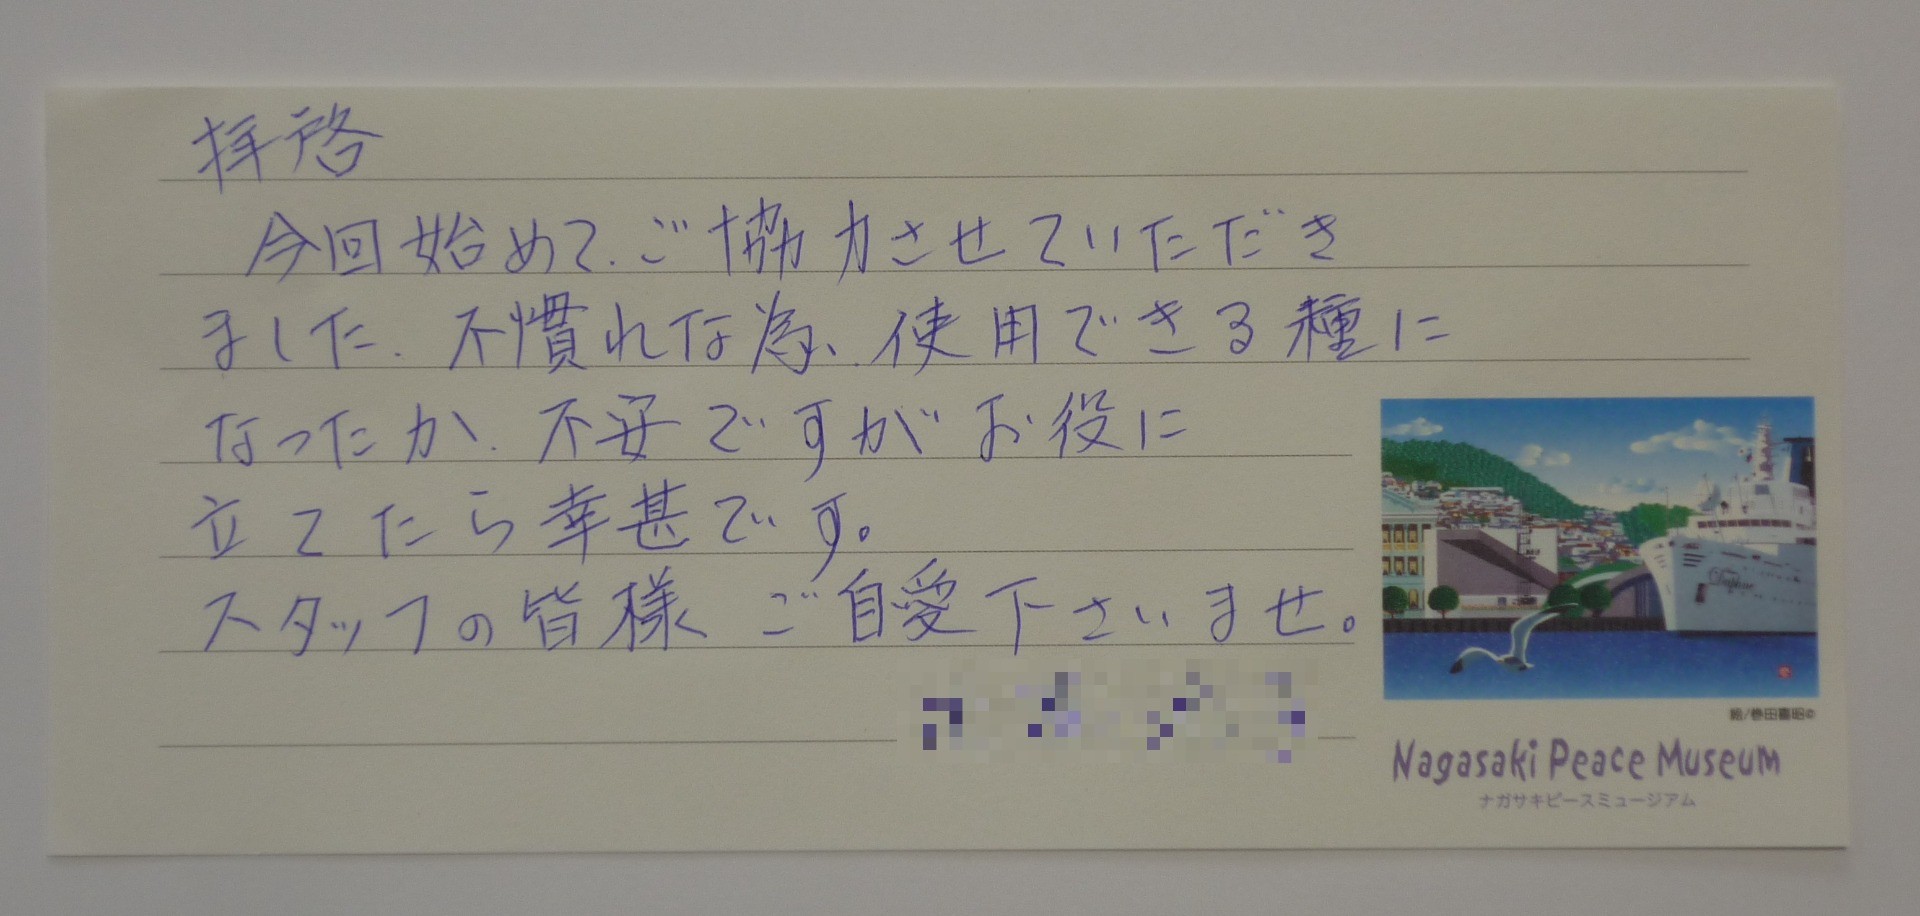 拝啓
今回始めて、ご協力させていただき
ました、不慣れな為、使用できる種に
なったか、不安ですがお役に
立てたら幸甚です。
スタッフの皆様 ご自愛下さいませ。
絵/巻田喜昭©
Nagasaki Peace Museum
ナガサキピースミュージアム